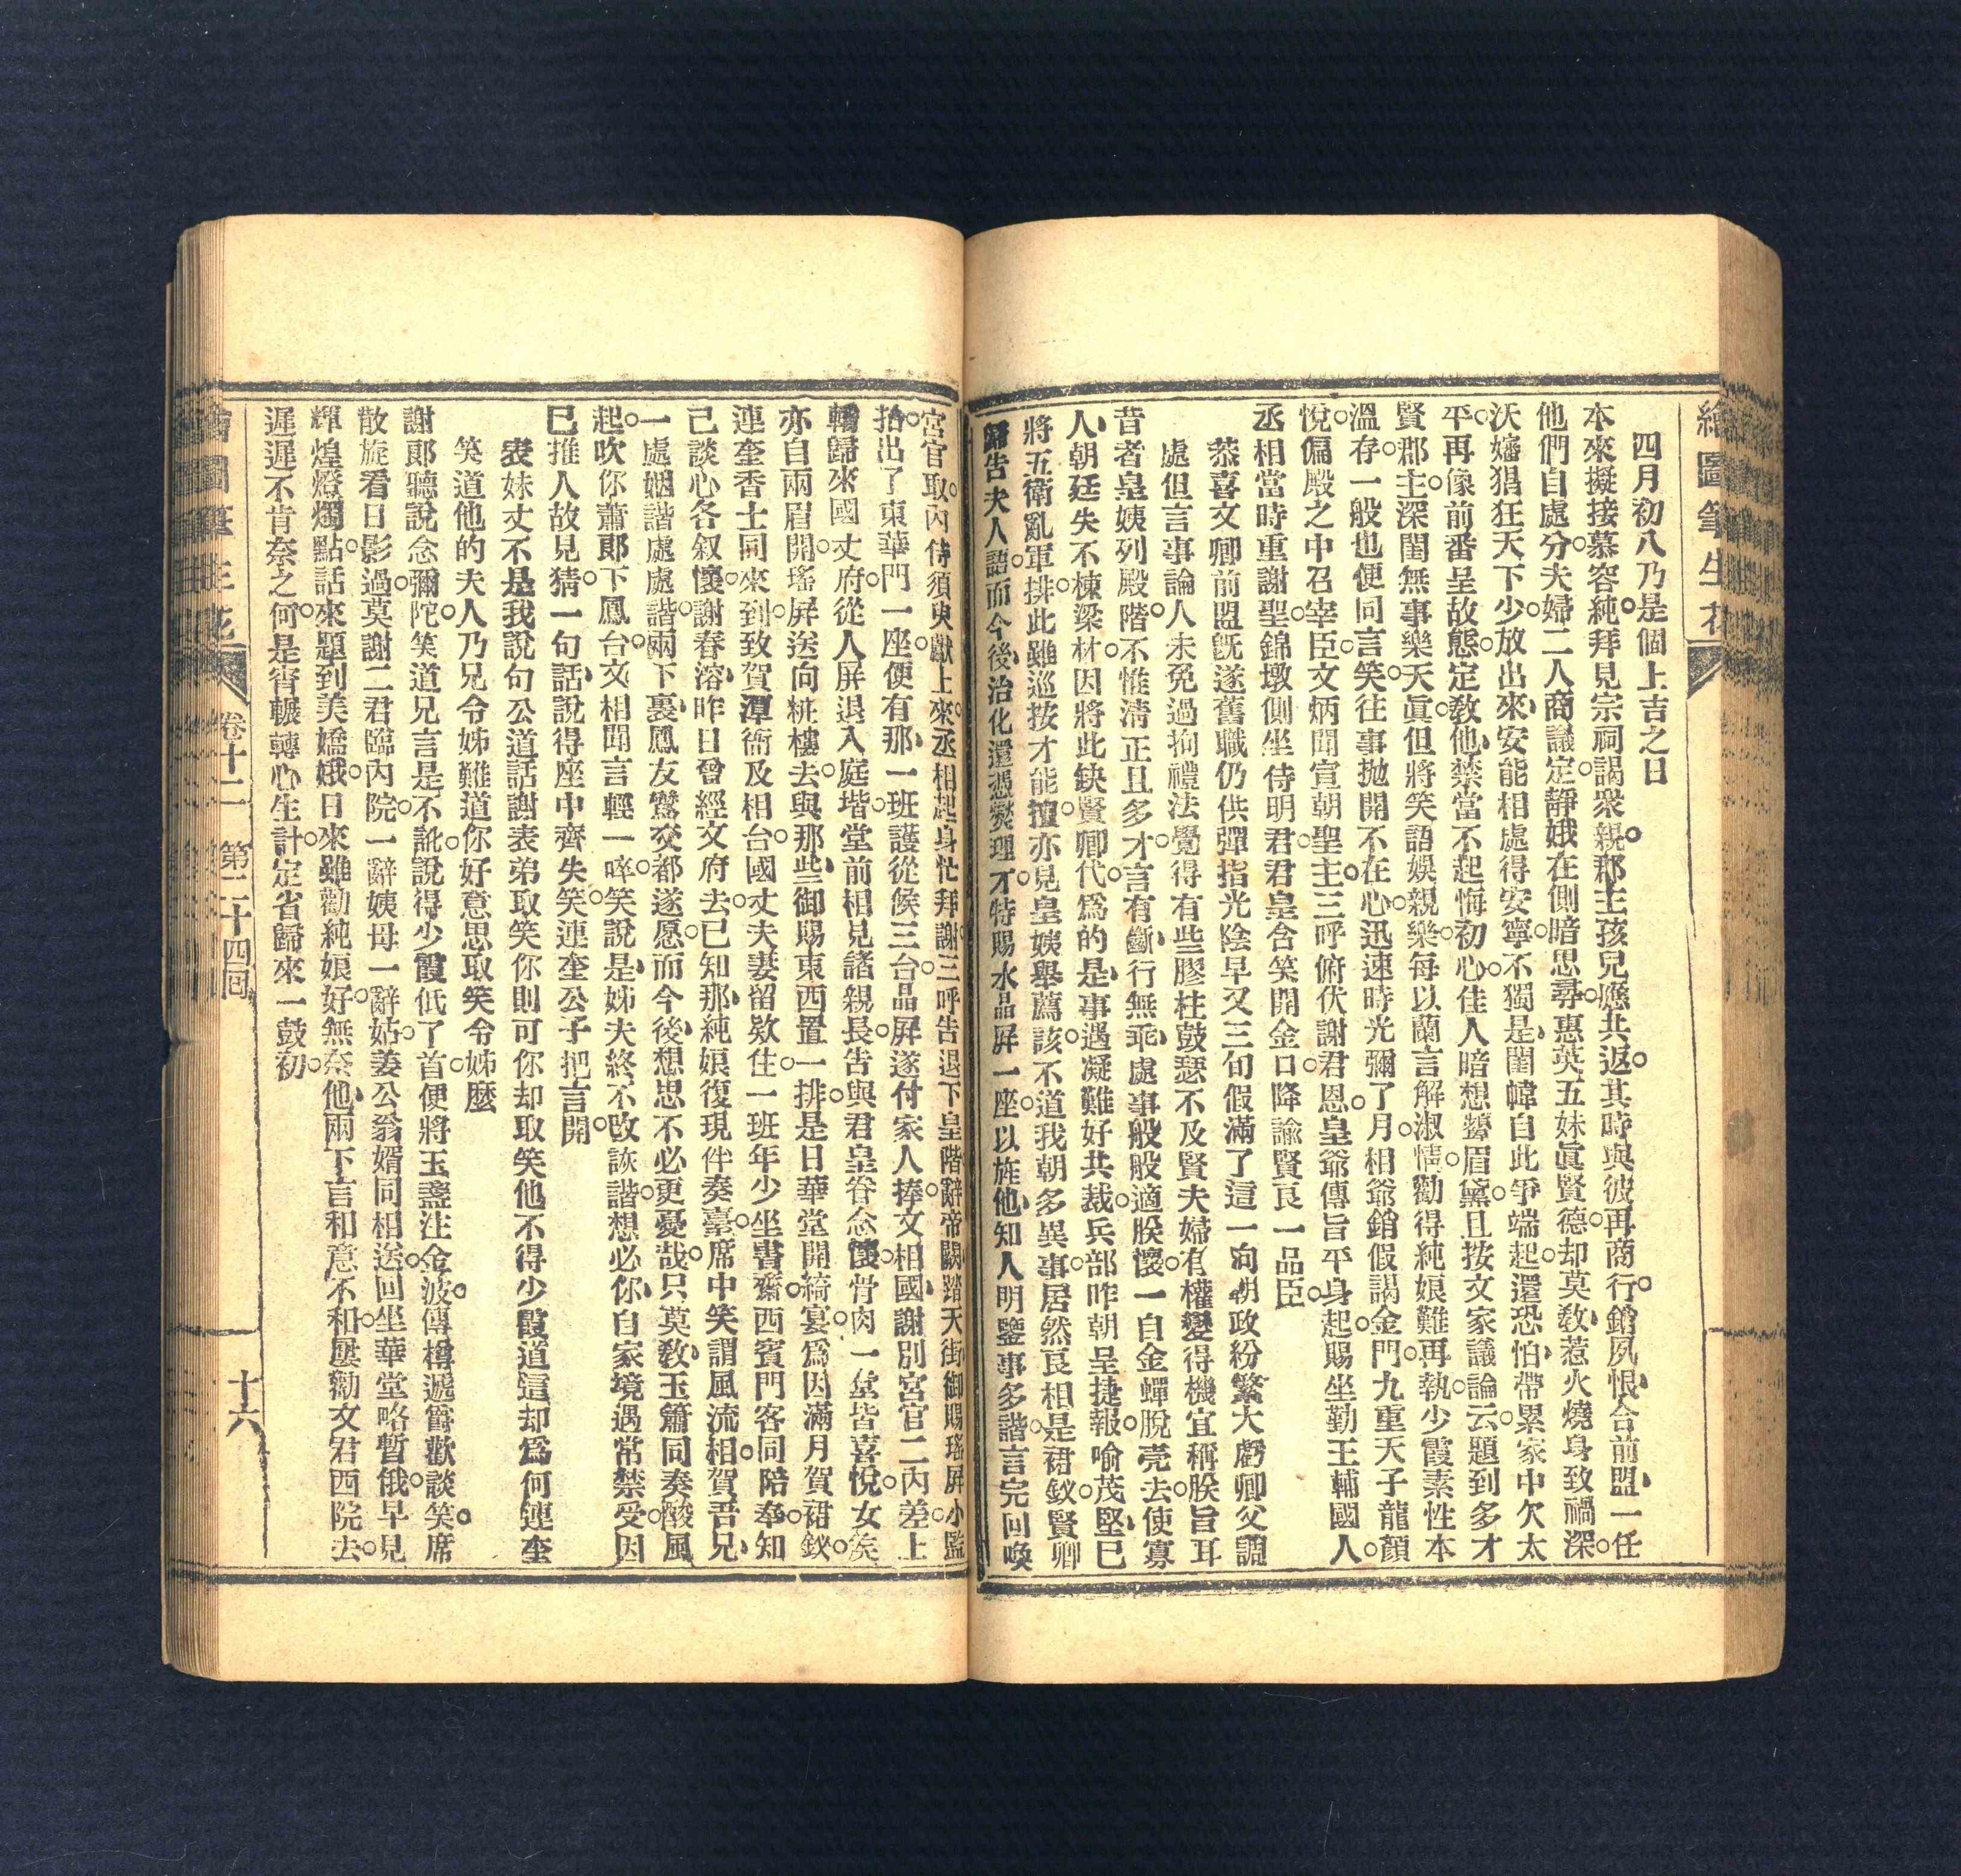 繪圖筆生花
四月初八乃是個上吉之日
本來擬接慕容純拜見宗祠謁衆親郡主孩兒應共返其時與彼再商行鎗夙恨合前盟一任
他們自處分夫婦二人商議定靜娥在側暗思尋惠英五妹眞賢德却莫敎惹火燒身致禍深
沃嬸猖狂天下少放出來安能相處得安寧不獨是閨幃自此爭端起還恐怕帶累家中欠太
平再像前番呈故態定敎他禁當不起悔初心佳人暗想顰眉黛且按文家議論云題到多才
賢郡主深閨無事樂天眞但將笑語娛親樂每以蘭言解淑情勸得純娘難再執少霞素性本
溫存一般也便同言笑往事拋開不在心迅速時光彌了月相爺銷假謁金門九重天子龍顏
悅偏殿之中召宰臣文炳聞宣朝聖主三呼俯伏謝君恩皇爺傳旨平身起賜坐勤王輔國人
丞相當時重謝聖錦墩側坐侍明君君皇含笑開金口降諭賢良一品臣
恭喜文卿前盟旣遂舊職仍供彈指光陰早又三旬假滿了這一向朝政紛繁大虧卿父調
處但言事論人未免過拘禮法覺得有些膠柱鼓瑟不及賢夫婦有權變得機宜稱朕旨耳
昔者皇姨列殿階不惟淸正且多才言有斷行無乖處事般般適朕懷一自金蟬脫壳去使寡
人朝廷失不棟梁材因將此缺賢卿代爲的是事遇凝難好共裁兵部昨朝呈捷報喻茂堅已
將五衛亂軍排此雖巡按才能擅亦見皇姨舉薦該不道我朝多異事居然良相是裙釵賢卿
歸告夫人語而今後治化還憑爕理才特賜水晶屛一座以旌他知人明鑒事多諧言完回喚
宮官取內侍須臾獻上來丞相起身忙拜謝三呼告退下皇階辭帝闕踏天街御賜瑤屛小監
抬出了東華門一座便有那一班護從候三台晶屛遂付家人捧文相國謝別宮官二內差上
轎歸來國丈府從人屛退入庭堦堂前相見諸親長告與君皇眷念懷骨肉一堂皆喜悅女矣
亦自兩眉開瑤屛送向粧樓去與那些御賜東西置一排是日華堂開綺宴爲因滿月賀裙釵
連奎香士同來到致賀潭衙及相台國丈夫妻留欵住一班年少坐書齋西賓門客同陪奉知
己談心各叙懷謝春溶昨日曾經文府去已知那純娘復現伴奏臺席中笑謂風流相賀吾兄
一處姻諧處處諧兩下裏鳳友鸞交都遂愿而今後想思不必更憂哉只莫敎玉簫同奏酸風
起吹你蕭郞下鳳台文相聞言輕一啐笑說是姊夫終不改詼諧想必你自家境遇常禁受因
已推人故見猜一句話說得座中齊失笑連奎公子把言開
表妹丈不是我說句公道話謝表弟取笑你則可你却取笑他不得少霞道這却爲何連奎
笑道他的夫人乃兄令姊難道你好意思取笑令姊麼
謝郞聽說念彌陀笑道兄言是不訛說得少霞低了首便將玉盞注金波傳樽遞斝歡談笑席
散旋看日影過莫謝二君臨內院一辭姨母一辭姑姜公翁婿同相送回坐華堂略暫俄早見
輝煌燈燭點話來題到美嬌娥日來雖勸純娘好無奈他兩下言和意不和屢勸文君西院去
遲遲不肯奈之何是宵輾轉心生計定省歸來一鼓初
卷十二　第二十四回
十六